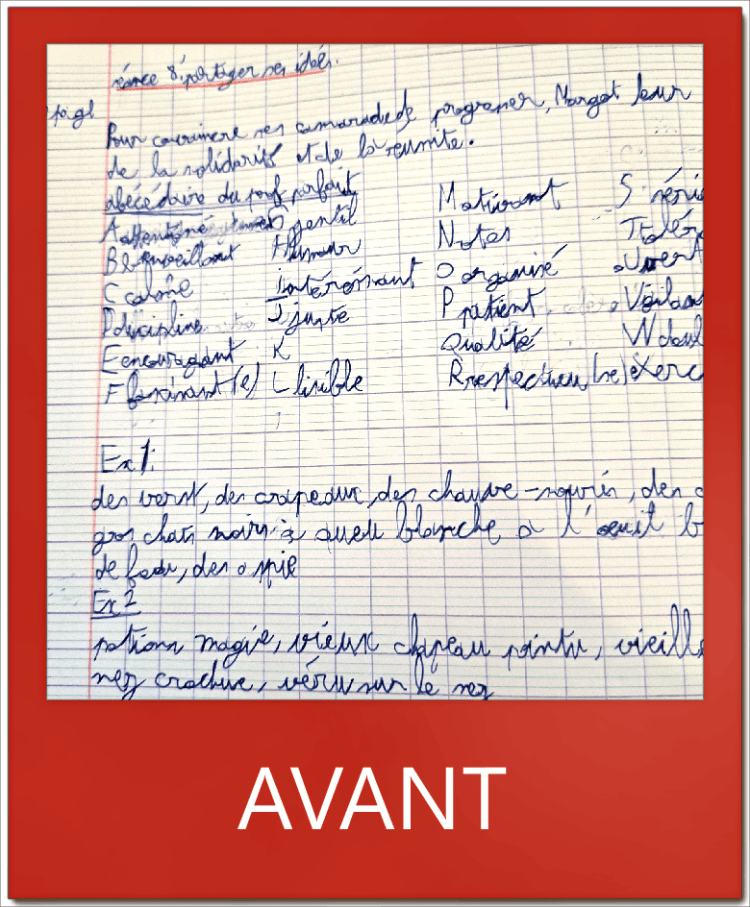 séance 8: partager ses idées.
pag1
Pour convaincre ses camarade de progresser, Margot leur
de la solidarité et de la réussite.
abécédaire du prof parfait
A attentioné G gentil Motivant S séri
B Bienveillant Humour Notes T tolér
C calme intéréssant O organisé Ouvert
D discipline J juste P patient Vigilan
E encouragant K Qualité W
F fascinant(e) L lisible R respectueu(se) exerc
Ex 1:
des verst, des crapeaux, des chauve-souris, des c
gros chats noirs à queu blanche a l'oeuil b
de feau, des
Ex 2
potions magie, vieux chapeau pointu, vieill
nez crochue, véru sur le nez
AVANT